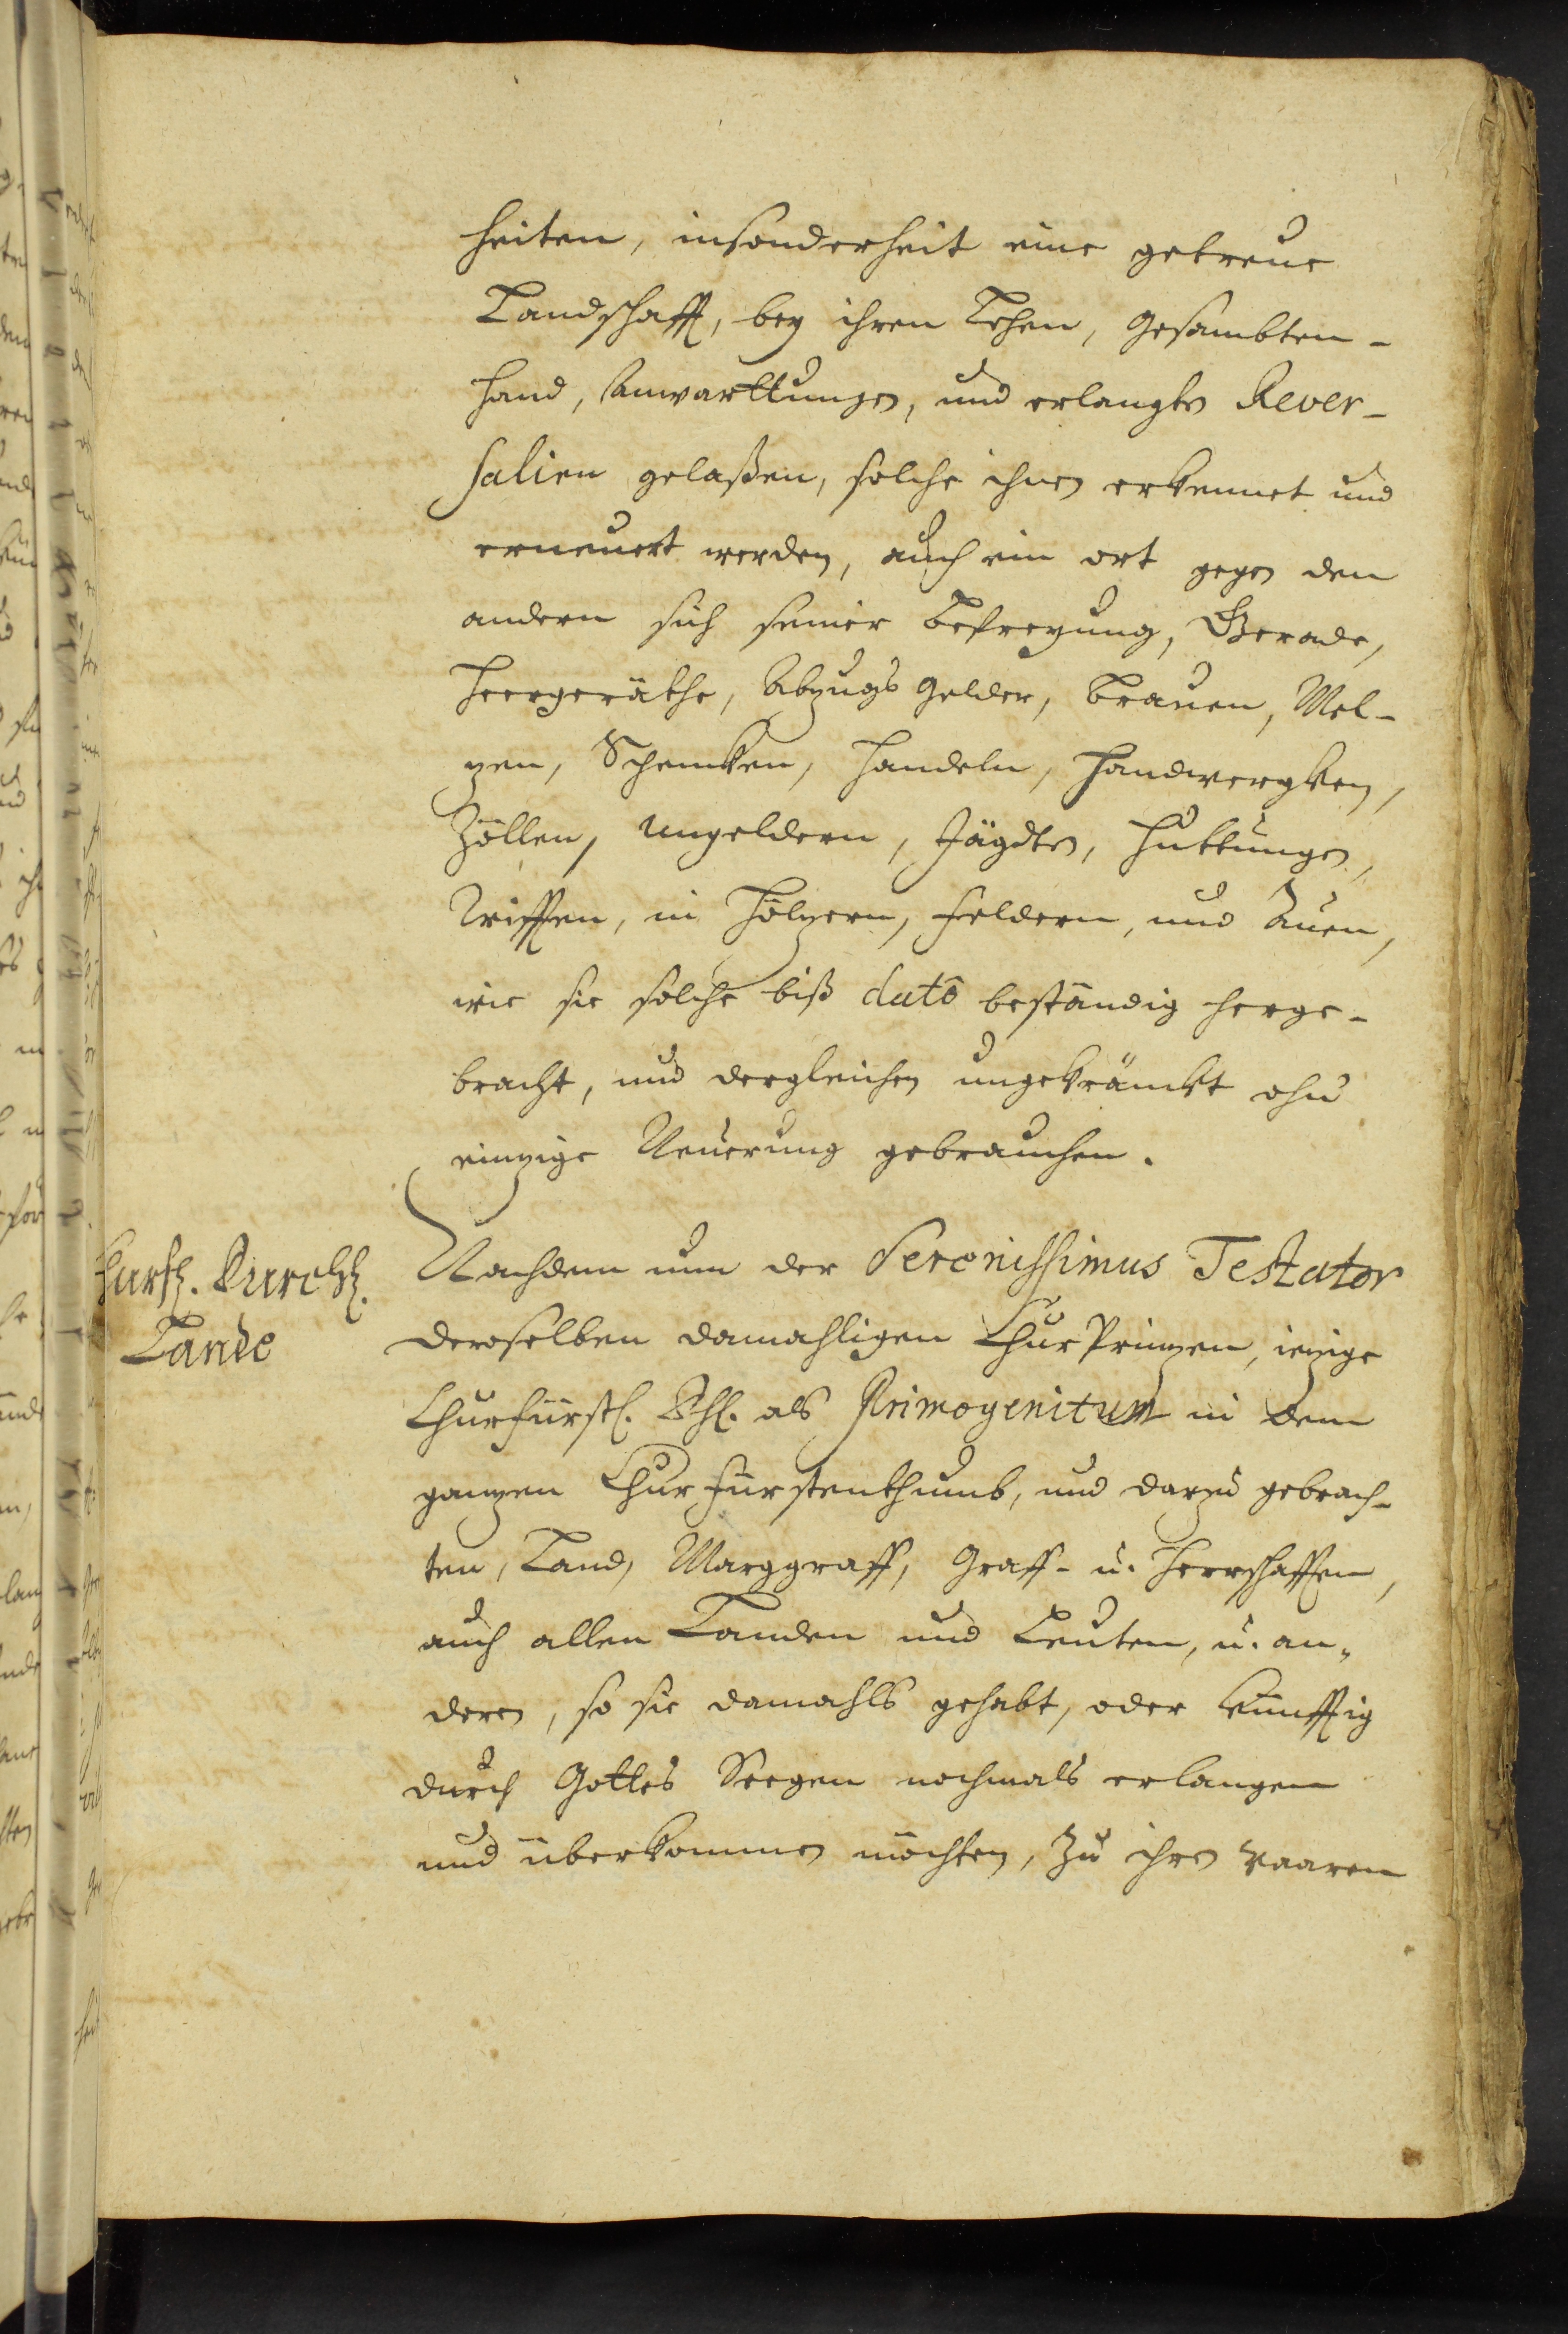 heiten, insonderheit eine getreue
Landschafft, bey ihren Lehen, Gesambten-
Hand, Anwarttungen, und erlangte Rever-
salien gelaßen, solche ihnen erkennet und
erneuert werden, auch ein ort gegen den
andern sich seiner Befreyung, Gerade,
Heergeräthe, Abzugs Gelder, Brauen, Mel-
zen, Schencken, Handeln, Handwergken,
Zöllen, Ungeldern, Jägdten, Huttungen,
Trifften, in Höltzern, Feldern, und Auen,
wie sie solche biß dato beständig herge-
bracht, und dergleichen ungekränckt ohn
eintzige Neuerung gebrauchen.
Churfl. Durchl.
Lande
Nachdem nun der Serenissimus Testator
deroselben damahligen Chur Printzen, ietzige
Churfürstl. Dhl. als Primogenitum in dem
gantzen Churfürstenthumb, und darzu gebrach-
ten, Land, Marggraff, Graff- u. Herrschafften,
auch allen Landen und Leuten, u. an-
dern, so sie damahls gehabt, oder künfftig
durch Gottes Seegen nochmals erlangen
und überkommen möchten, zu ihren waaren